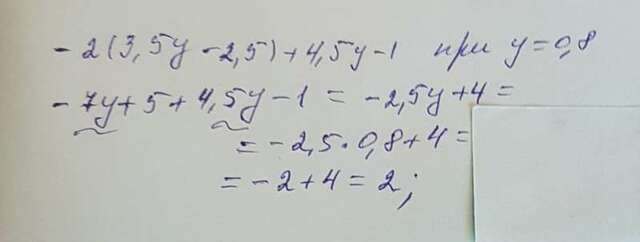 -2(3,5y-2,5)+4,5y-1 при y=0,8
-7y+5+4,5y-1=-2,5y+4=
=-2,5·0,8+4=
=-2+4=2;